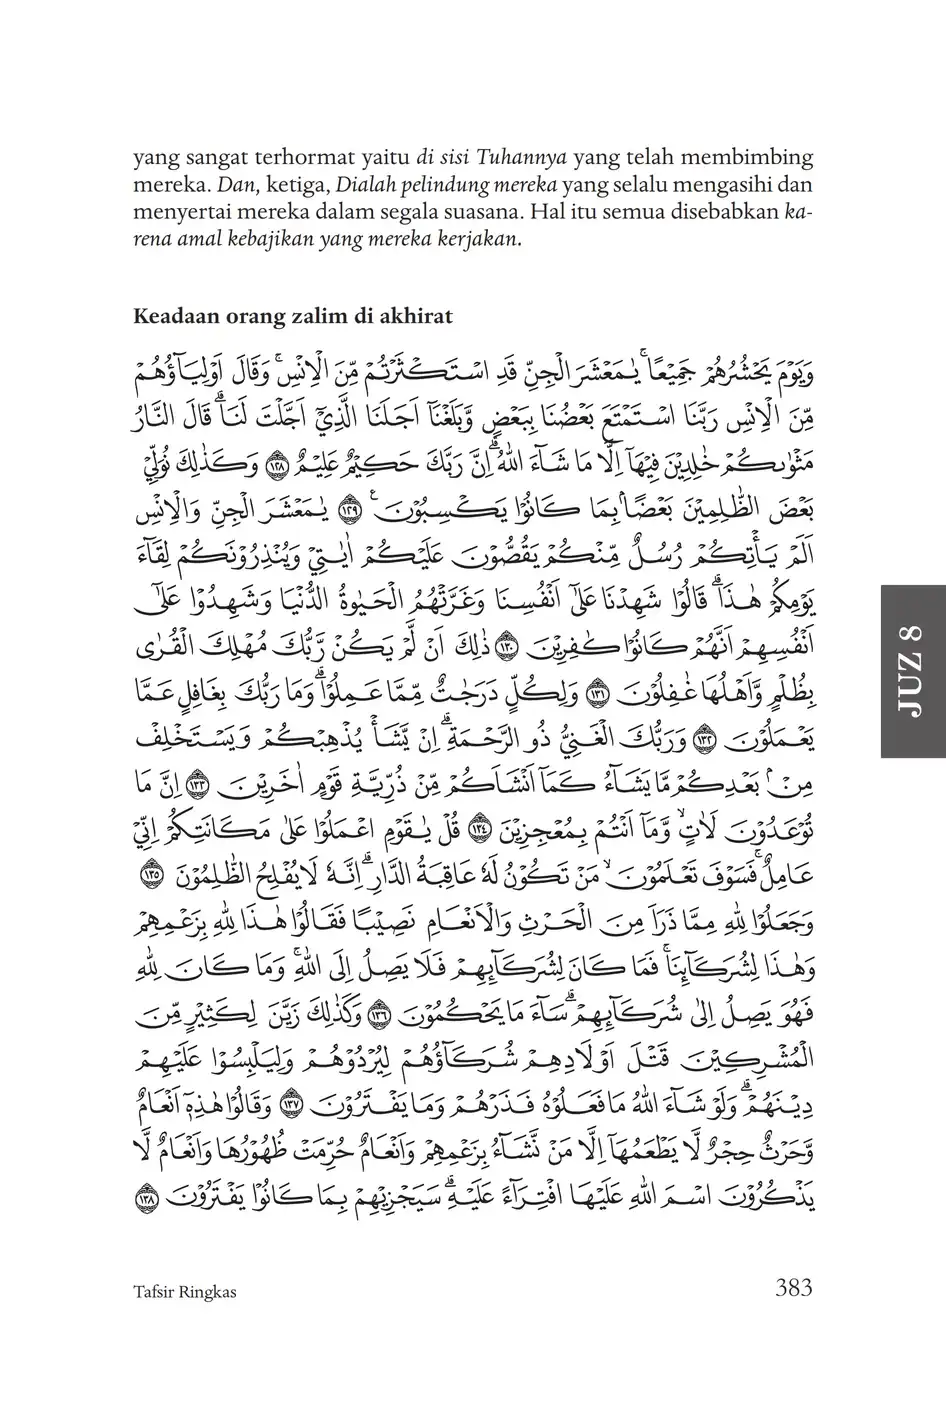 yang sangat terhormat yaitu di sisi Tuhannya yang telah membimbing
mereka. Dan, ketiga, Dialah pelindung mereka yang selalu mengasihi dan
menyertai mereka dalam segala suasana. Hal itu semua disebabkan ka-
rena amal kebajikan yang mereka kerjakan.
Keadaan orang zalim di akhirat
وَيَوْمَ يَحْشُرُهُمْ جَمِيْعًاۚ يٰمَعْشَرَ الْجِنِّ قَدِ اسْتَكْثَرْتُمْ مِّنَ الْاِنْسِۚ وَقَالَ اَوْلِيَاۤؤُهُمْ
مِّنَ الْاِنْسِ رَبَّنَا اسْتَمْتَعَ بَعْضُنَا بِبَعْضٍ وَّبَلَغْنَآ اَجَلَنَا الَّذِيْٓ اَجَّلْتَ لَنَاۗ قَالَ النَّارُ
مَثْوٰىكُمْ خٰلِدِيْنَ فِيْهَآ اِلَّا مَا شَاۤءَ اللّٰهُۗ اِنَّ رَبَّكَ حَكِيْمٌ عَلِيْمٌ ١٢٨ وَكَذٰلِكَ نُوَلِّيْ
بَعْضَ الظّٰلِمِيْنَ بَعْضًاۢ بِمَا كَانُوْا يَكْسِبُوْنَ ࣖ ١٢٩ يٰمَعْشَرَ الْجِنِّ وَالْاِنْسِ
اَلَمْ يَأْتِكُمْ رُسُلٌ مِّنْكُمْ يَقُصُّوْنَ عَلَيْكُمْ اٰيٰتِيْ وَيُنْذِرُوْنَكُمْ لِقَاۤءَ
يَوْمِكُمْ هٰذَاۗ قَالُوْا شَهِدْنَا عَلٰٓى اَنْفُسِنَا وَغَرَّتْهُمُ الْحَيٰوةُ الدُّنْيَا وَشَهِدُوْا عَلٰٓى
اَنْفُسِهِمْ اَنَّهُمْ كَانُوْا كٰفِرِيْنَ ١٣٠ ذٰلِكَ اَنْ لَّمْ يَكُنْ رَّبُّكَ مُهْلِكَ الْقُرٰى
بِظُلْمٍ وَّاَهْلُهَا غٰفِلُوْنَ ١٣١ وَلِكُلٍّ دَرَجٰتٌ مِّمَّا عَمِلُوْاۗ وَمَا رَبُّكَ بِغَافِلٍ عَمَّا
يَعْمَلُوْنَ ١٣٢ وَرَبُّكَ الْغَنِيُّ ذُو الرَّحْمَةِۗ اِنْ يَّشَأْ يُذْهِبْكُمْ وَيَسْتَخْلِفْ
مِنْۢ بَعْدِكُمْ مَّا يَشَاۤءُ كَمَآ اَنْشَاَكُمْ مِّنْ ذُرِّيَّةِ قَوْمٍ اٰخَرِيْنَ ١٣٣ اِنَّ مَا
تُوْعَدُوْنَ لَاٰتٍۙ وَّمَآ اَنْتُمْ بِمُعْجِزِيْنَ ١٣٤ قُلْ يٰقَوْمِ اعْمَلُوْا عَلٰى مَكَانَتِكُمْ اِنِّيْ
عَامِلٌۚ فَسَوْفَ تَعْلَمُوْنَۙ مَنْ تَكُوْنُ لَهٗ عَاقِبَةُ الدَّارِۗ اِنَّهٗ لَا يُفْلِحُ الظّٰلِمُوْنَ ١٣٥
وَجَعَلُوْا لِلّٰهِ مِمَّا ذَرَاَ مِنَ الْحَرْثِ وَالْاَنْعَامِ نَصِيْبًا فَقَالُوْا هٰذَا لِلّٰهِ بِزَعْمِهِمْ
وَهٰذَا لِشُرَكَاۤىِٕنَاۚ فَمَا كَانَ لِشُرَكَاۤىِٕهِمْ فَلَا يَصِلُ اِلَى اللّٰهِۚ وَمَا كَانَ لِلّٰهِ
فَهُوَ يَصِلُ اِلٰى شُرَكَاۤىِٕهِمْۗ سَاۤءَ مَا يَحْكُمُوْنَ ١٣٦ وَكَذٰلِكَ زَيَّنَ لِكَثِيْرٍ مِّنَ
الْمُشْرِكِيْنَ قَتْلَ اَوْلَادِهِمْ شُرَكَاۤؤُهُمْ لِيُرْدُوْهُمْ وَلِيَلْبِسُوْا عَلَيْهِمْ
دِيْنَهُمْۗ وَلَوْ شَاۤءَ اللّٰهُ مَا فَعَلُوْهُ فَذَرْهُمْ وَمَا يَفْتَرُوْنَ ١٣٧ وَقَالُوْا هٰذِهٖٓ اَنْعَامٌ
وَّحَرْثٌ حِجْرٌ لَّا يَطْعَمُهَآ اِلَّا مَنْ نَّشَاۤءُ بِزَعْمِهِمْ وَاَنْعَامٌ حُرِّمَتْ ظُهُوْرُهَا وَاَنْعَامٌ لَّا
يَذْكُرُوْنَ اسْمَ اللّٰهِ عَلَيْهَا افْتِرَاۤءً عَلَيْهِۗ سَيَجْزِيْهِمْ بِمَا كَانُوْا يَفْتَرُوْنَ ١٣٨
JUZ 8
Tafsir Ringkas
383